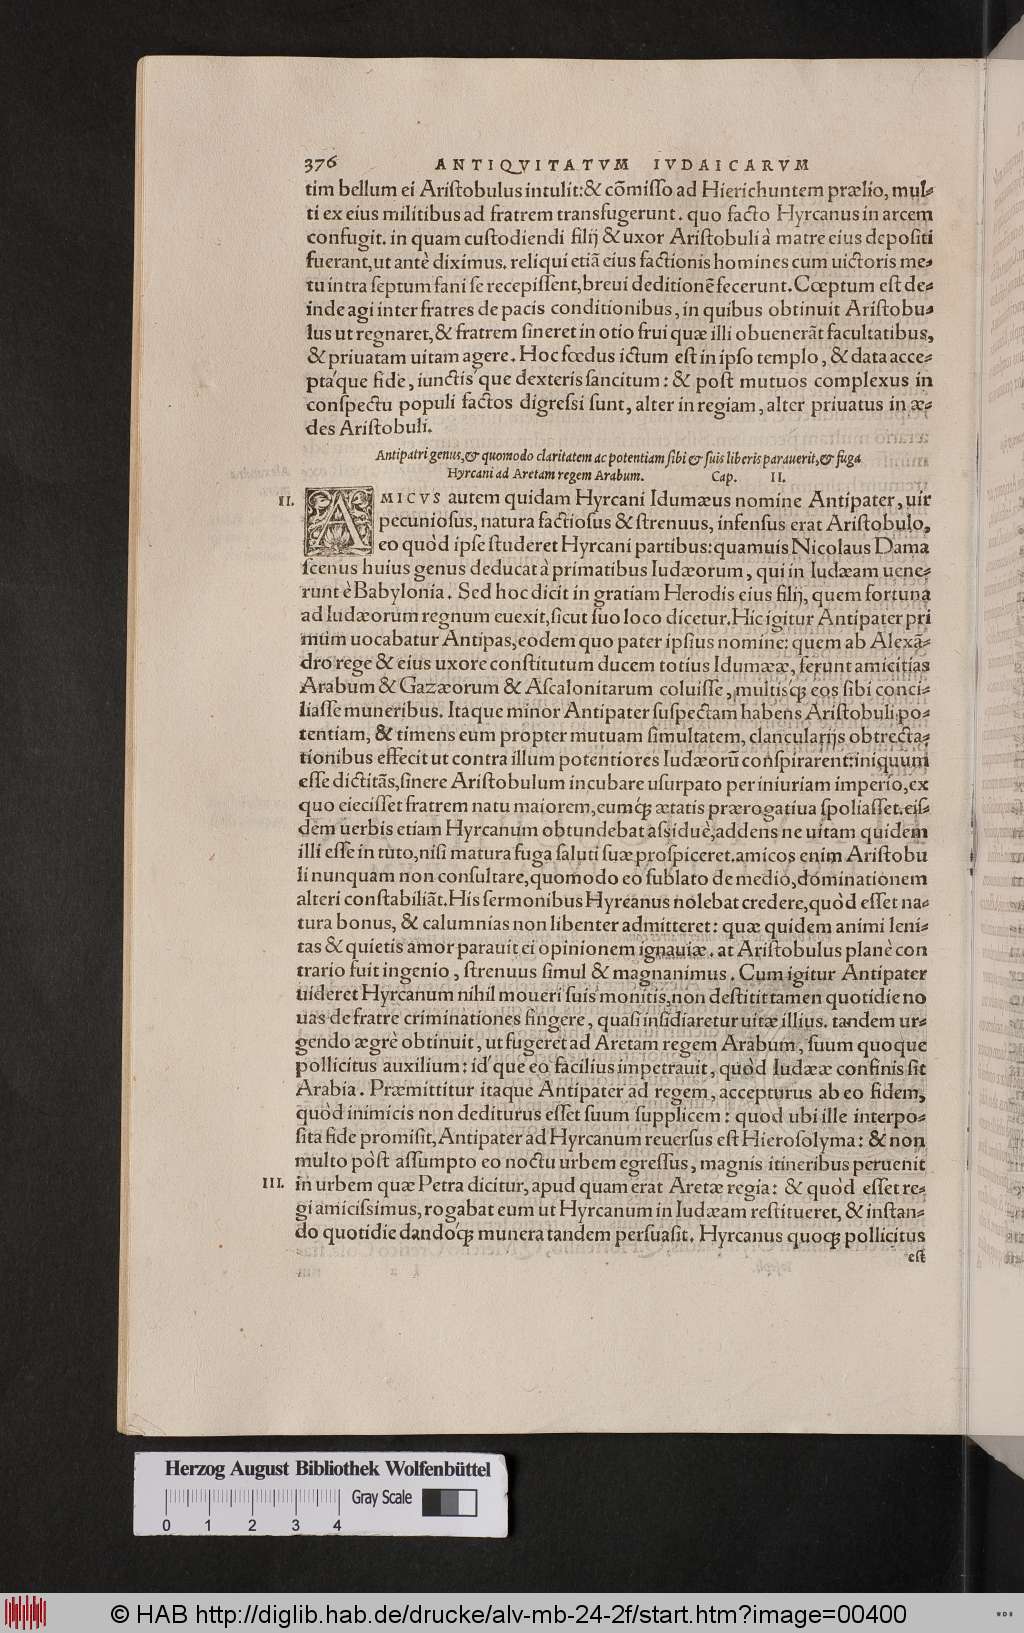 376 ANTIQVITATVM IVDAICARVM
tim bellum ei Aristobulus intulit:& cõmisso ad Hierichuntem prælio, mul-
ti ex eius militibus ad fratrem transfugerunt. quo facto Hyrcanus in arcem
confugit. in quam custodiendi filij & uxor Aristobuli à matre eius depositi
fuerant, ut antè diximus. reliqui etiã eius factionis homines cum uictoris me-
tu intra septum fani se recepissent, breui deditionẽ fecerunt. Cœptum est de-
inde agi inter fratres de pacis conditionibus, in quibus obtinuit Aristobu-
lus ut regnaret, & fratrem sineret in otio frui quæ illi obuenerãt facultatibus,
& priuatam uitam agere. Hoc fœdus ictum est in ipso templo, & data acce-
ptáque fide, iunctis que dexteris sancitum: & post mutuos complexus in
conspectu populi factos digressi sunt, alter in regiam, alter priuatus in æ-
des Aristobuli.
Antipatri genus, & quomodo claritatem ac potentiam sibi & suis liberis parauerit, & fuga
Hyrcani ad Aretam regem Arabum. Cap. II.
II. AMICVS autem quidam Hyrcani Idumæus nomine Antipater, uir
pecuniosus, natura factiosus & strenuus, infensus erat Aristobulo,
eo quòd ipse studeret Hyrcani partibus: quamuis Nicolaus Dama
scenus huius genus deducat à primatibus Iudæorum, qui in Iudæam uene-
runt è Babylonia. Sed hoc dicit in gratiam Herodis eius filij, quem fortuna
ad Iudæorum regnum euexit, sicut suo loco dicetur. Hic igitur Antipater pri
mùm uocabatur Antipas, eodem quo pater ipsius nomine: quem ab Alexã-
dro rege & eius uxore constitutum ducem totius Idumææ, ferunt amicitias
Arabum & Gazæorum & Ascalonitarum coluisse, multisq́; eos sibi conci-
liasse muneribus. Itaque minor Antipater suspectam habens Aristobuli po-
tentiam, & timens eum propter mutuam simultatem, clancularijs obtrecta-
tionibus effecit ut contra illum potentiores Iudæorũ conspirarent: iniquum
esse dictitãs, sinere Aristobulum incubare usurpato per iniuriam imperio, ex
quo eiecisset fratrem natu maiorem, eumq́; ætatis prærogatiua spoliasset. eis-
dem uerbis etiam Hyrcanum obtundebat assiduè, addens ne uitam quidem
illi esse in tuto, nisi matura fuga saluti suæ prospiceret. amicos enim Aristobu
li nunquam non consultare, quomodo eo sublato de medio, dominationem
alteri constabiliãt. His sermonibus Hyrcanus nolebat credere, quòd esset na-
tura bonus, & calumnias non libenter admitteret: quæ quidem animi leni-
tas & quietis amor parauit ei opinionem ignauiæ. at Aristobulus planè con
trario fuit ingenio, strenuus simul & magnanimus. Cum igitur Antipater
uideret Hyrcanum nihil moueri suis monitis, non destitit tamen quotidie no
uas de fratre criminationes fingere, quasi insidiaretur uitæ illius. tandem ur-
gendo ægrè obtinuit, ut fugeret ad Aretam regem Arabum, suum quoque
pollicitus auxilium: id que eo facilius impetrauit, quòd Iudææ confinis sit
Arabia. Præmittitur itaque Antipater ad regem, accepturus ab eo fidem,
quòd inimicis non dediturus esset suum supplicem: quod ubi ille interpo-
sita fide promisit, Antipater ad Hyrcanum reuersus est Hierosolyma: & non
multo pòst assumpto eo noctu urbem egressus, magnis itineribus peruenit
III. in urbem quæ Petra dicitur, apud quam erat Aretæ regia: & quòd esset re-
gi amicissimus, rogabat eum ut Hyrcanum in Iudæam restitueret, & instan-
do quotidie dandóq; munera tandem persuasit. Hyrcanus quoq; pollicitus
est
Herzog August Bibliothek Wolfenbüttel
Gray Scale
0 1 2 3 4
© HAB http://diglib.hab.de/drucke/alv-mb-24-2f/start.htm?image=00400